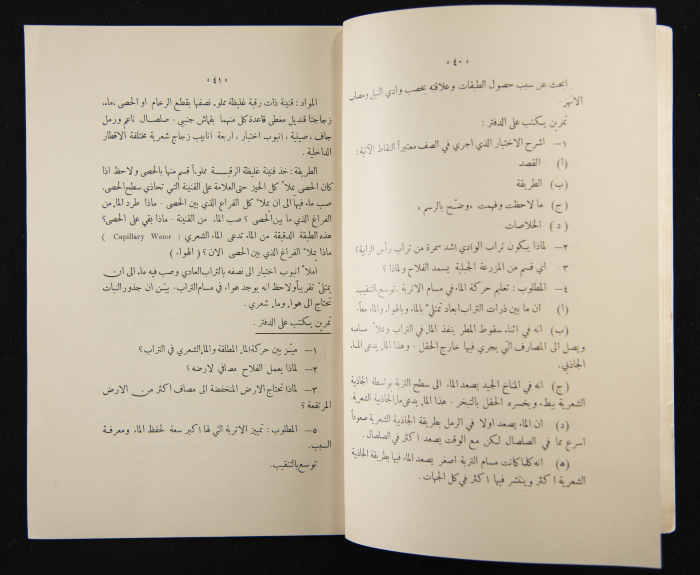 «٤٠»
ابحث عن سبب حصول الطبقات وعلاقته بخصب وادي النيل ومصاب
الانهر.
تمرين يكتب على الدفتر :
١– اشرح الاختبار الذي اجري في الصف معتبراً النقاط الآتية:
(أ) القصد
(ب) الطريقة
(ج) ما لاحظت وفهمت «وضّح بالرسم»
(د) الخلاصات
٢– لماذا يكون تراب الوادي اشد سمرة من تراب رأس الرابية؟
٣ اي قسم من المزرعة الجبلية يسمد الفلاح ولماذا ؟
٤– المطلوب : تعليم حركة الماء في مسام الاتربة . توسع بالتنقيب.
(أ) ان ما بين ذرات التراب ابعاد تمتلئ بالماء وبالهواء والماء معاً.
(ب) انه في اثناء سقوط المطر ينفذ الماء في التراب ويملأ مسامه
ويصل الى المصارف التي يجري فيها خارج الحقل . وهذا الماء يدعى الماء
الجاذبي.
(ج) انه في المناخ الجيد يصعد الماء الى سطح التربة بواسطة الجاذبية
الشعرية ببطء ويخسره الحقل بالتبخر . هذا الماء يدعى ماء الجاذبية الشعرية.
(د) ان الماء يصعد اولا في الرمل بطريقة الجاذبية الشعرية صعوداً
اسرع مما في الصلصال لكن مع الوقت يصعد اكثر في الصلصال .
(ه) انه كلما كانت مسام التربة اصغر يصعد الماء فيها بطريقة الجاذبية
الشعرية اكثر وينتشر فيها اكثر في كل الجهات .
«٤١»
المواد : قنينة ذات رقبة غليظة مملوء نصفها بقطع الرخام او الحصى .ماء.
زجاجتا قنديل مغطى قاعدة كل منهما بقماش جنبي . صلصال ناعم ورمل
جاف، صينية ، انبوب اختبار ، اربعة انابيب زجاج شعرية مختلفة الاقطار
الداخلية .
الطريقة : خذ قنينة غليظة الرقبة مملوءاً قسم منها بالحصى ولاحظ اذا
كان الحصى يملأ كل الحيز حتى العلامة على القنينة التي تحاذي سطح الحصى.
صب ماء فيها الى ان يملأ كل الفراغ الذي بين الحصى . ماذا طرد الماء من
الفراغ الذي ما بين الحصى ؟ صب الماء من القنينة . ماذا بقي على الحصى؟
هذه الطبقة الدقيقة من الماء تدعى الماء الشعري ( Capillary Water )
ماذا يملأ الفراغ الذي بين الحصى الان ؟ ( الهواء )
املأ انبوب اختبار الى نصفه بالتراب العادي وصب فيه ماء الى ان
يمتلئ تقريباً ولاحظ انه يوجد هواء في مسام التراب . بيّن ان جذور النبات
تحتاج الى هواء وماء شعري .
تمرين يكتب على الدفتر .
١– ميّز بين حركة الماء المطلقة والماء الشعري في التراب؟
٢– لماذا يعمل الفلاح مصافي لارضه ؟
٣– لماذا تحتاج الارض المنخفضة الى مصاف اكثر من الارض
المرتفعة ؟
٥– المطلوب : تمييز الاتربة التي لها اكبر سعة لحفظ الماء ومعرفة
السبب.
توسع بالتنقيب.